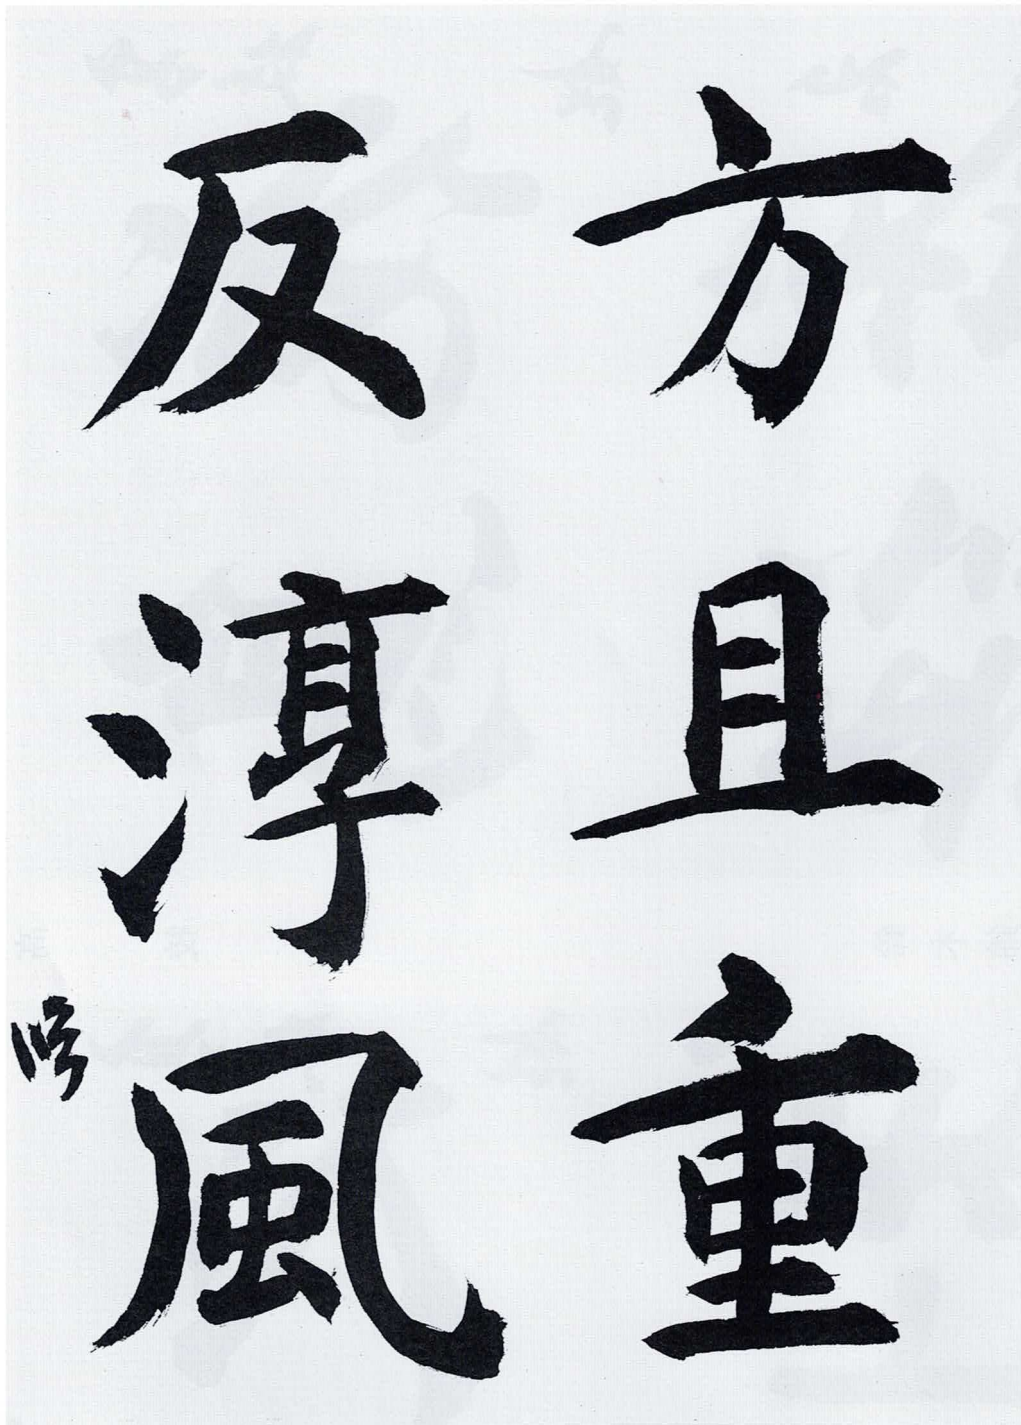 方且重
反淳風